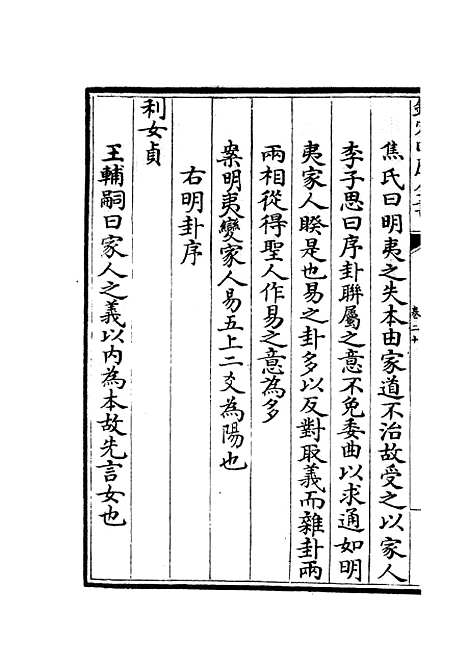 焦氏曰明夷之失本由家道不治故受之以家人
李子思曰序卦聨屬之意不免委曲以求通如明
夷家人睽是也易之卦多以反對取義而雜卦兩
兩相從得聖人作易之意為多
案明夷變家人易五上二爻為陽也
右明卦序
利女貞
王輔嗣曰家人之義以内為本故先言女也
卷二十